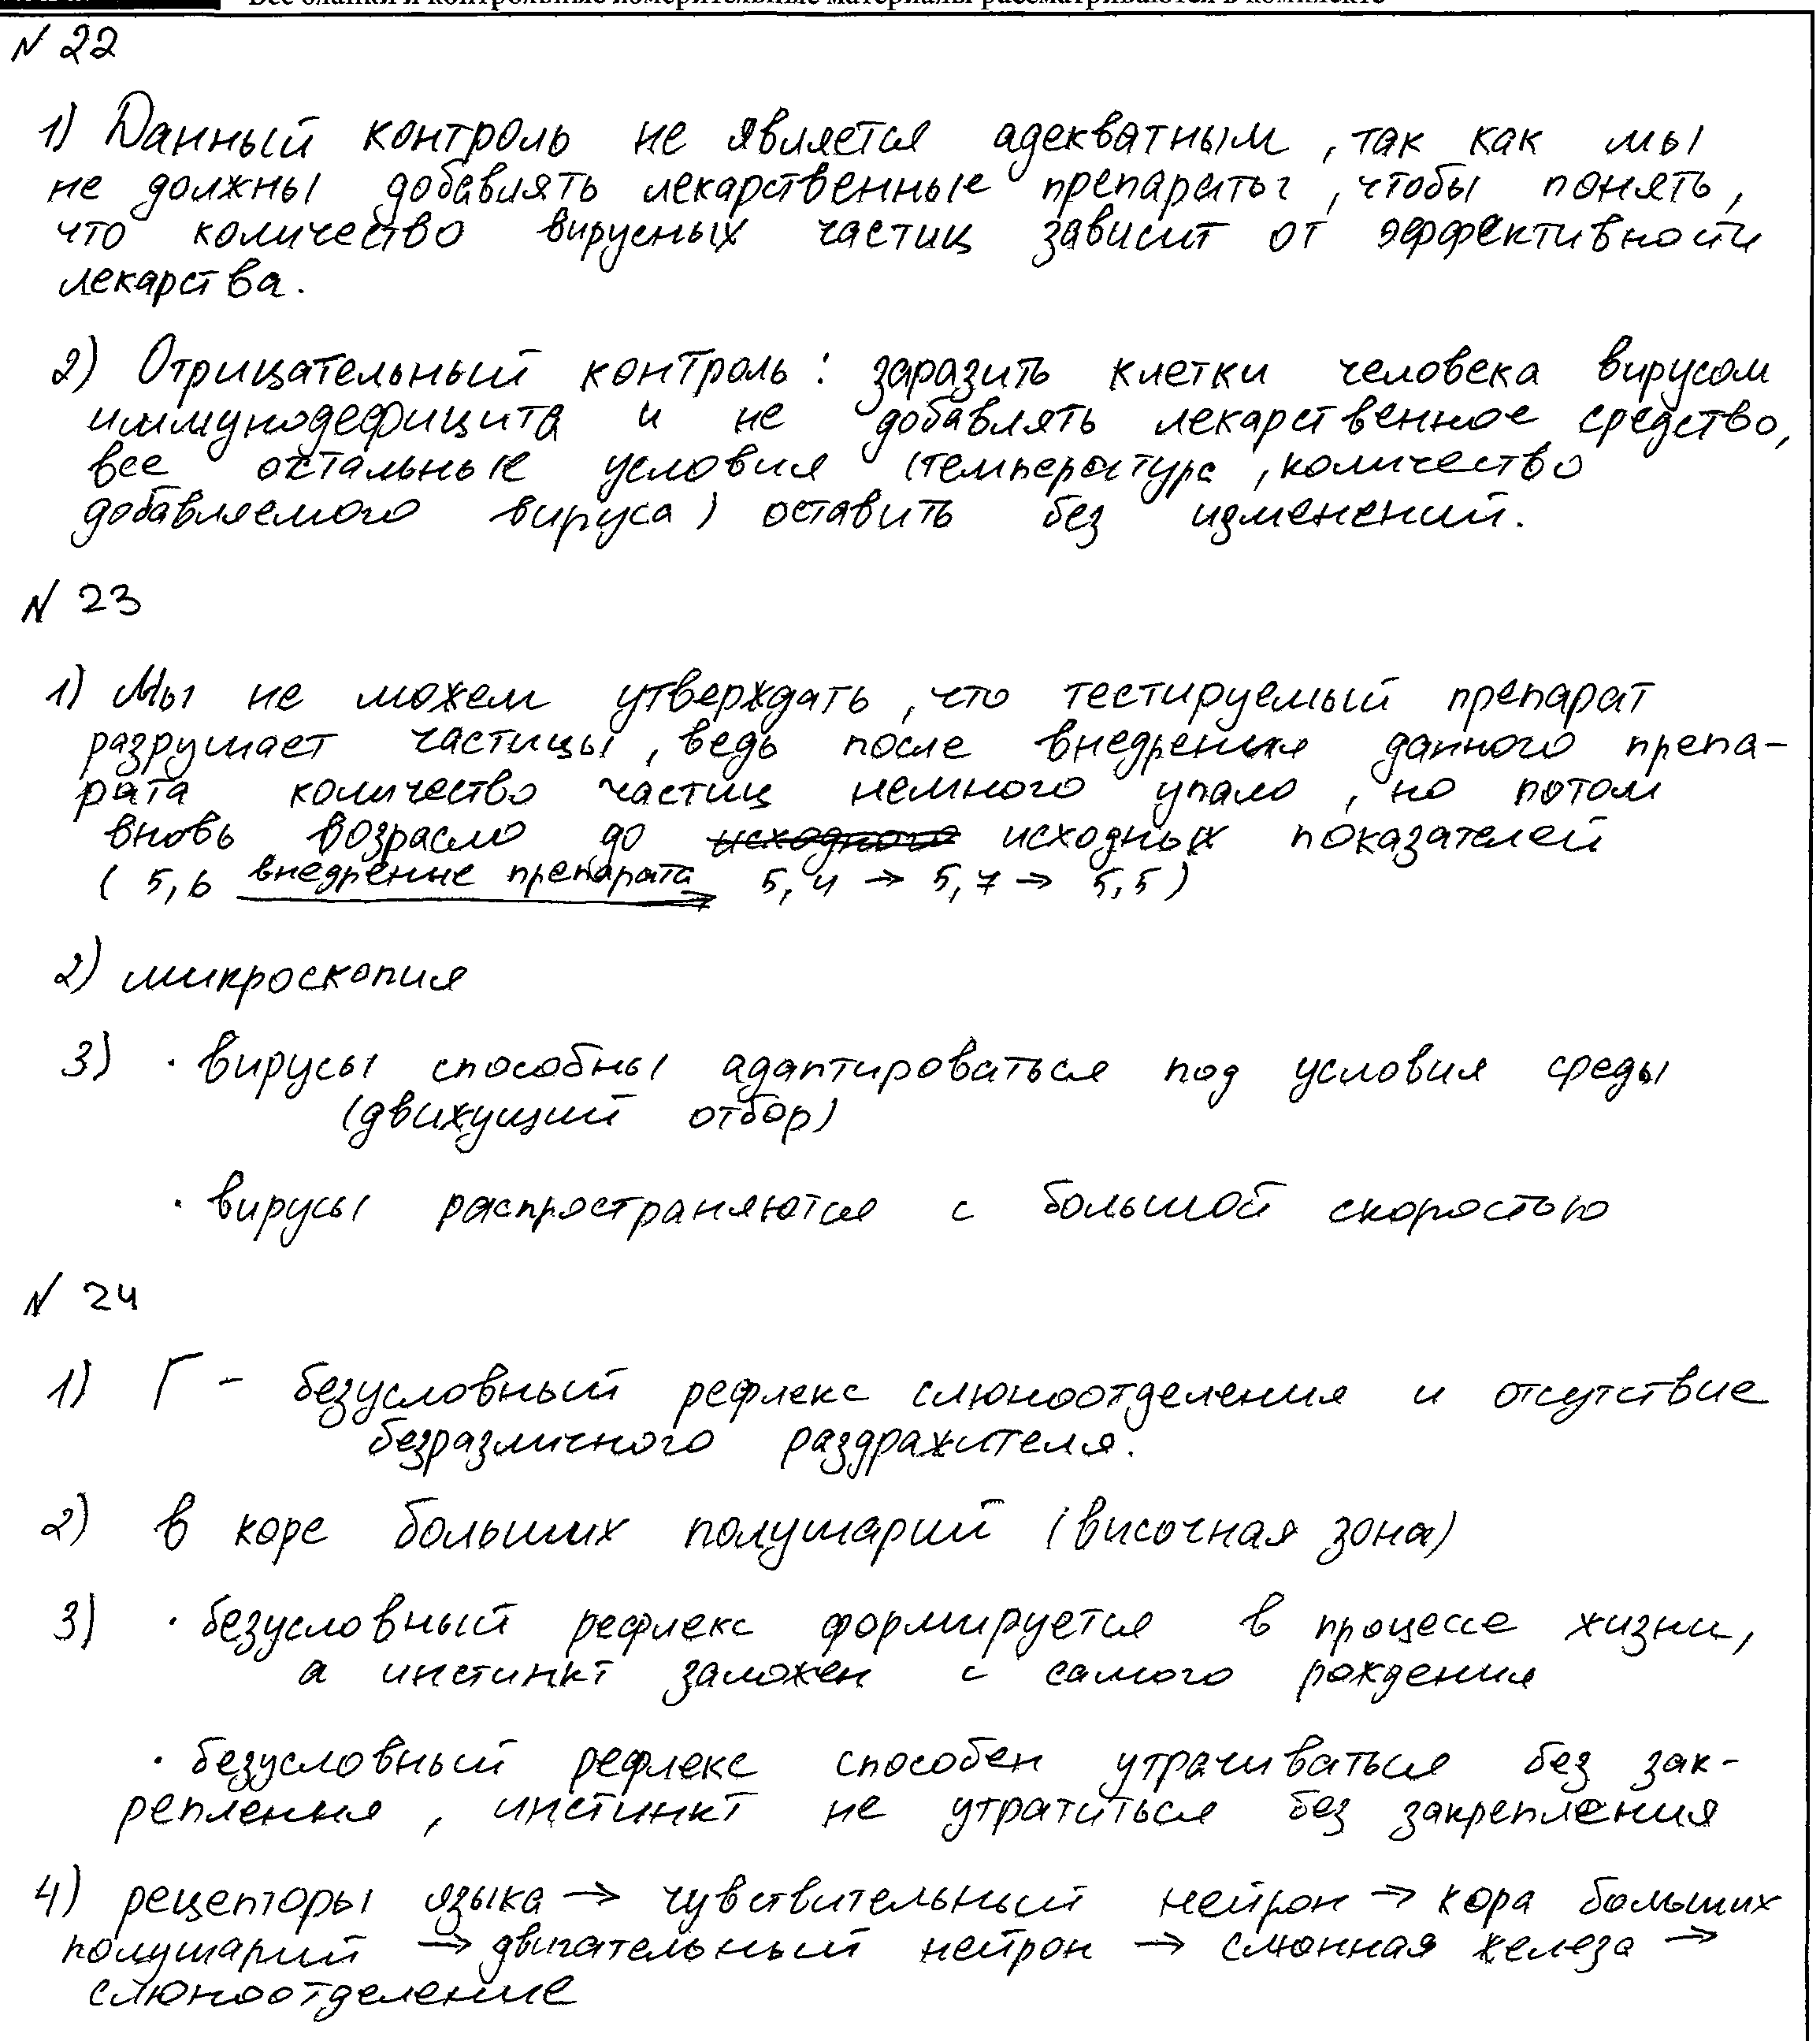 Все бланки и контрольные измерительные материалы рассматриваются в комплекте
№ 22
1) Данный контроль не является адекватным, так как мы
не должны добавлять лекарственные препараты, чтобы понять,
что количество вирусных частиц зависит от эффективности
лекарства.
2) Отрицательный контроль: заразить клетки человека вирусом
иммунодефицита и не добавлять лекарственное средство,
все остальные условия (температура, количество
добавляемого вируса) оставить без изменений.
№ 23
1) Мы не можем утверждать, что тестируемый препарат
разрушает частицы, ведь после внедрения данного препа-
рата количество частиц немного упало, но потом
вновь возрасло до исходного исходных показателей
(5,6 внедрение препарата → 5,4 → 5,7 → 5,5)
2) микроскопия
3) · вирусы способны адаптироваться под условия среды
(движущий отбор)
· вирусы распространяются с большой скоростью
№ 24
1) Г - безусловный рефлекс слюноотделения и отсутствие
безразличного раздражителя.
2) в коре больших полушарий (височная зона)
3) · безусловный рефлекс формируется в процессе жизни,
а инстинкт заложен с самого рождения
· безусловный рефлекс способен утрачиваться без зак-
репления, инстинкт не утратиться без закрепления
4) рецепторы языка → чувствительный нейрон → кора больших
полушарий → двигательный нейрон → слюнная железа →
слюноотделение